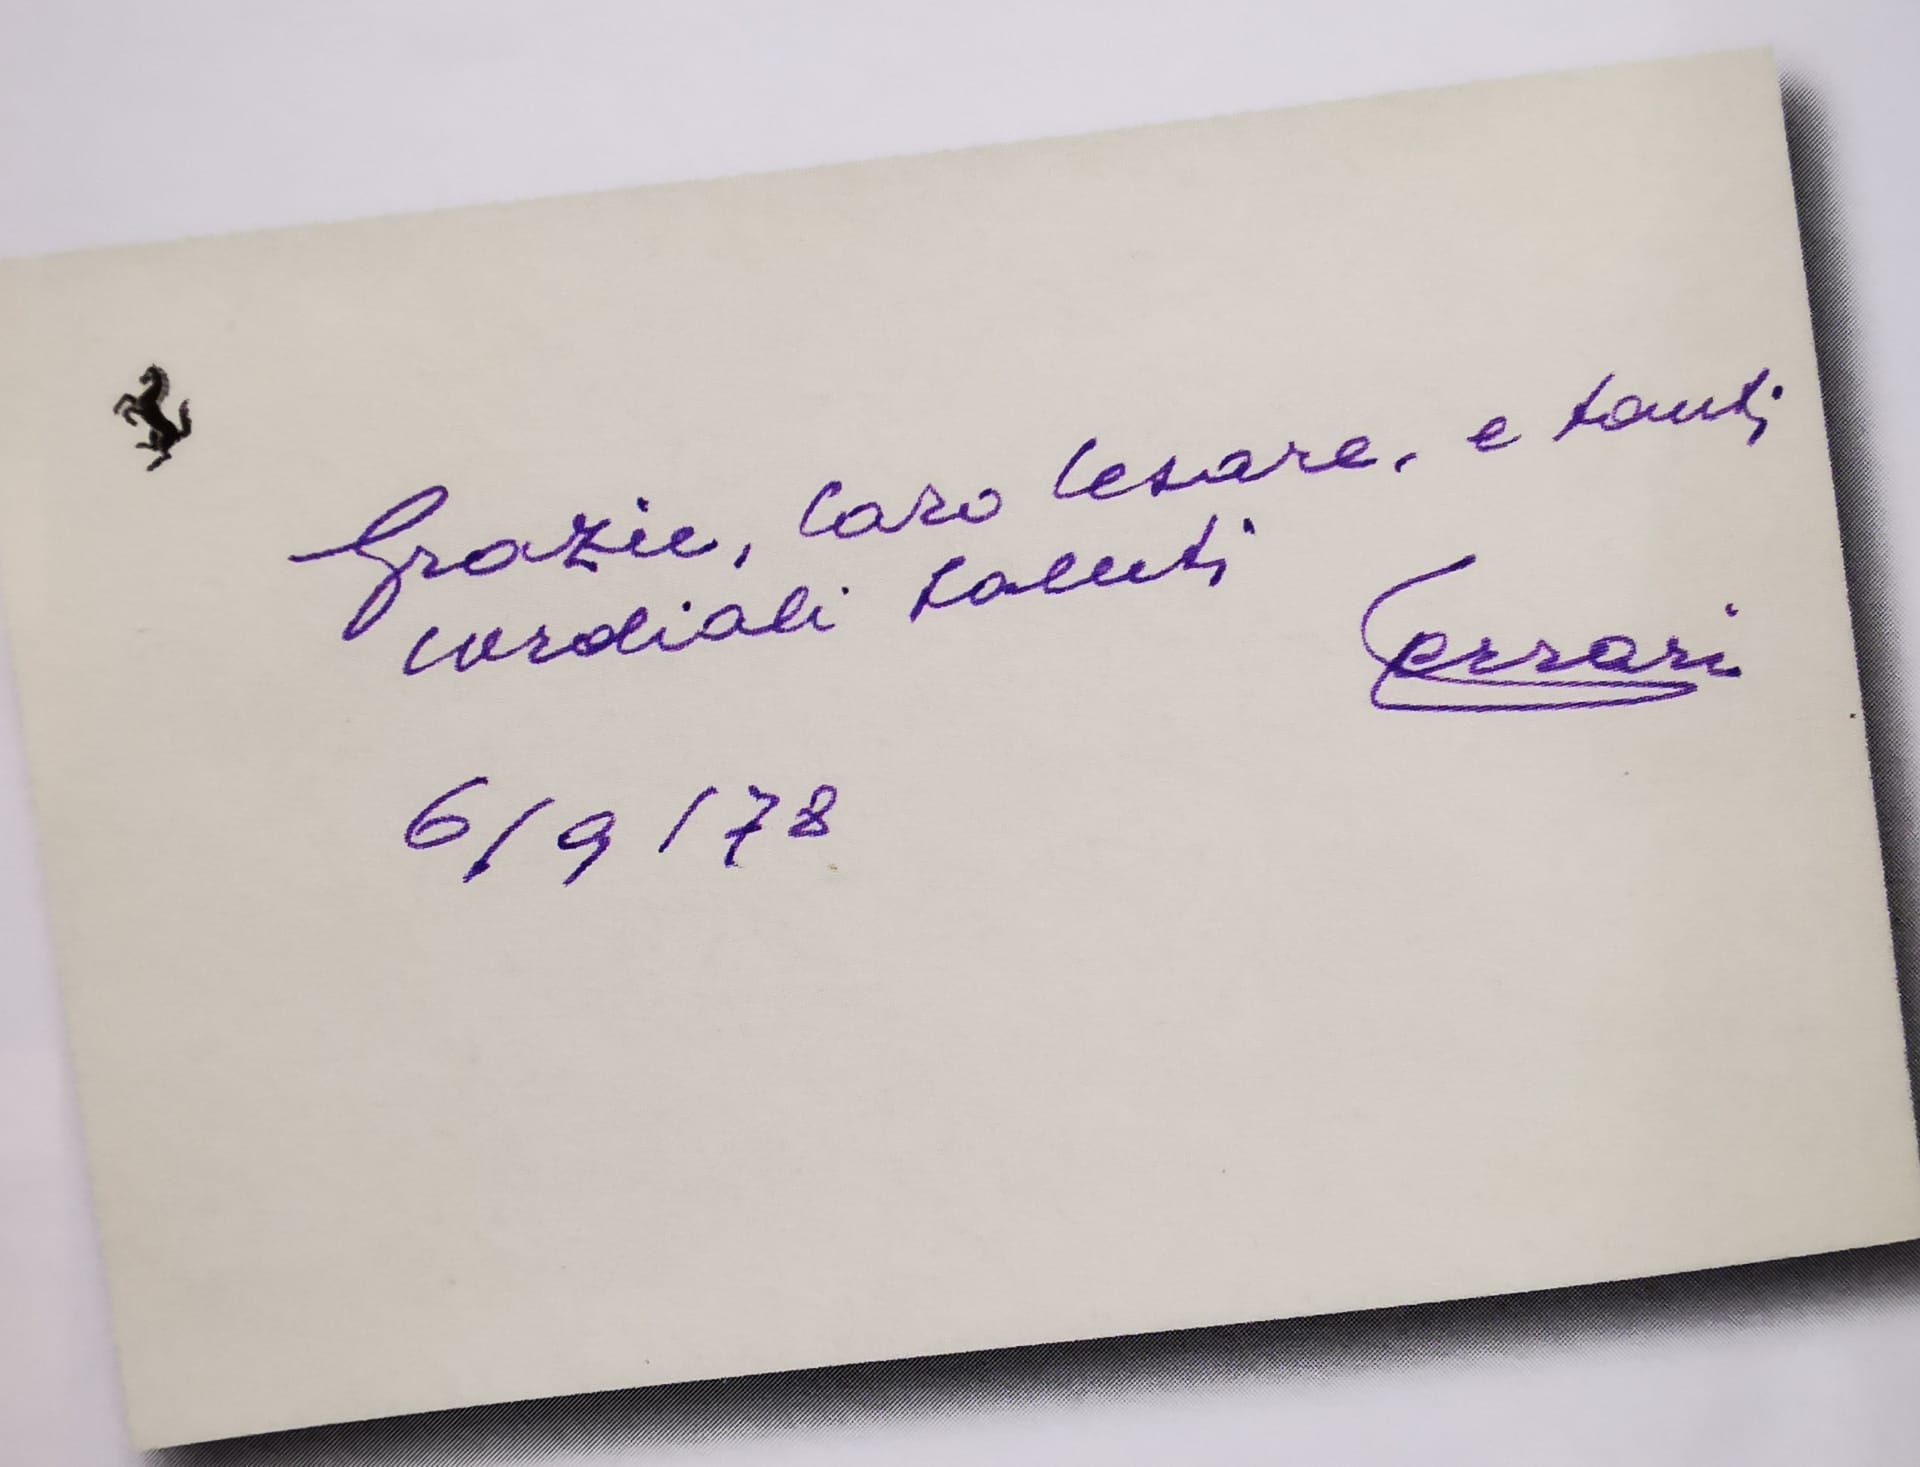 Grazie, Caro Cesare, e tanti
cordiali saluti
Ferrari
6/9/78